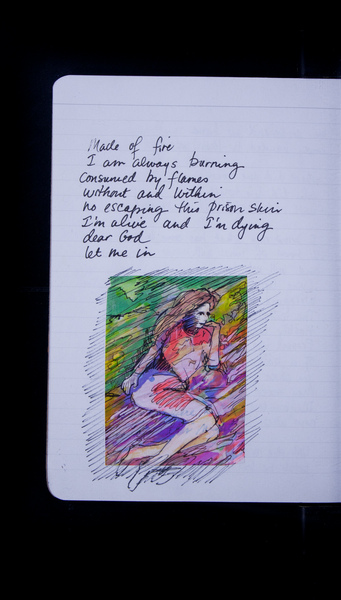 Made of fire
I am always burning
Consumed by flames
without and within
no escaping this prison skin
I'm alive and I'm dying
dear God
let me in